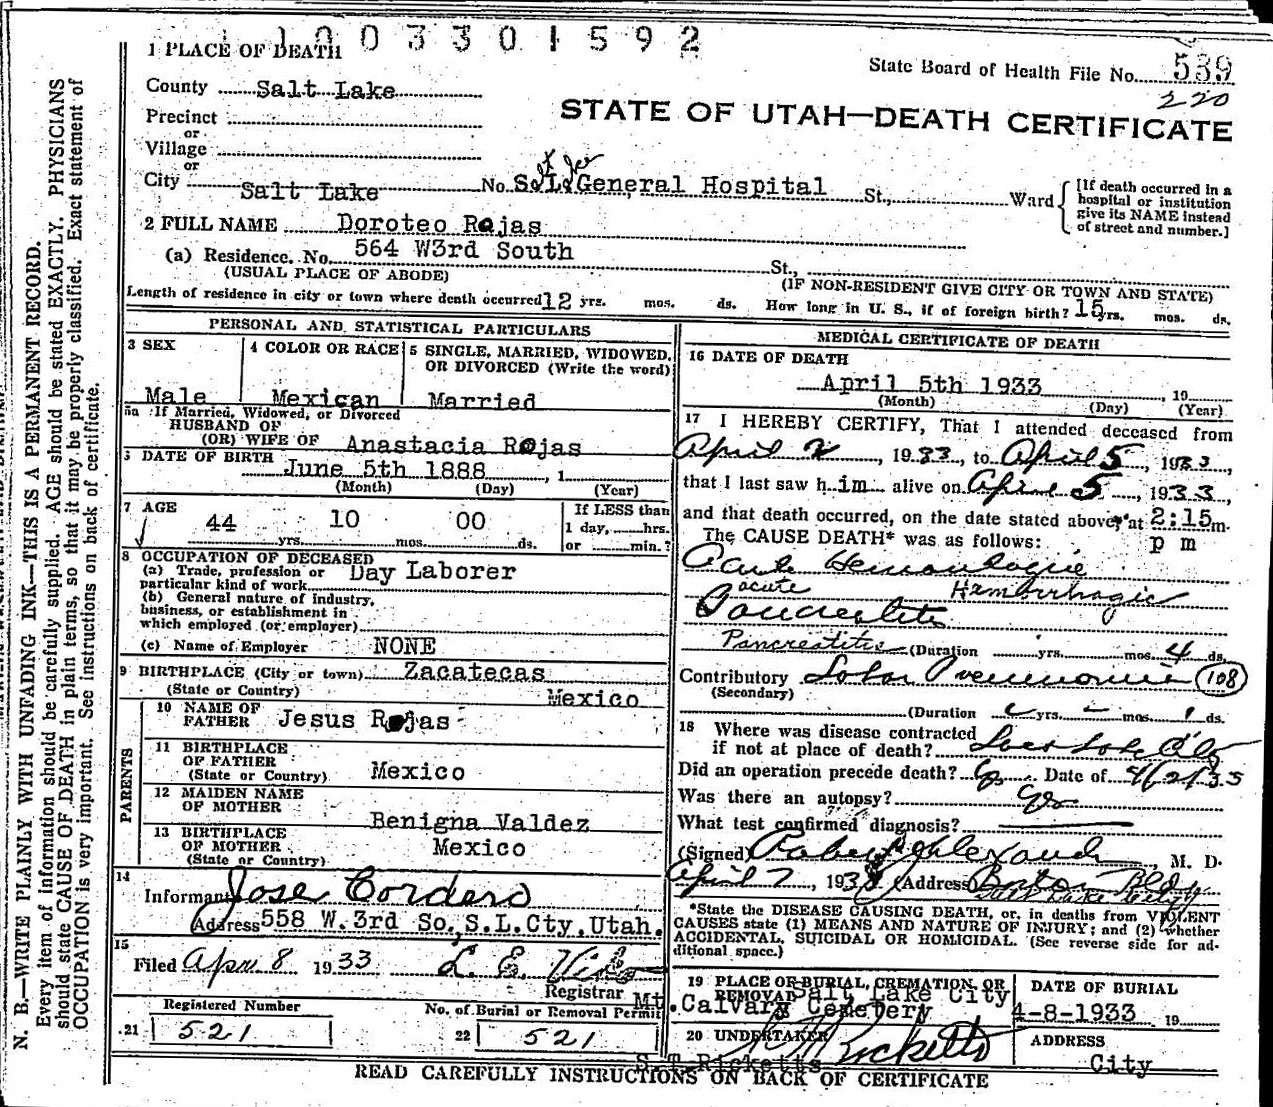 1003301592
1 PLACE OF DEATH
State Board of Health File No. 539
220
County Salt Lake
STATE OF UTAH—DEATH CERTIFICATE
Precinct
or
Village
or
City Salt Lake No. S.L. General Hospital St., Ward
[If death occurred in a hospital or institution give its NAME instead of street and number.]
2 FULL NAME Doroteo Rojas
(a) Residence. No. 564 W3rd South St.,
(USUAL PLACE OF ABODE) (IF NON-RESIDENT GIVE CITY OR TOWN AND STATE)
Length of residence in city or town where death occurred 12 yrs. mos. ds. How long in U. S., if of foreign birth? 15 yrs. mos. ds.
PERSONAL AND STATISTICAL PARTICULARS
3 SEX
Male
4 COLOR OR RACE
Mexican
5 SINGLE, MARRIED, WIDOWED, OR DIVORCED (Write the word)
Married
5a If Married, Widowed, or Divorced
HUSBAND OF
(OR) WIFE OF Anastacia Rojas
6 DATE OF BIRTH June 5th 1888, 1
(Month) (Day) (Year)
7 AGE
44 yrs. 10 mos. 00 ds.
If LESS than
1 day, hrs.
or min.?
8 OCCUPATION OF DECEASED
(a) Trade, profession or
particular kind of work Day Laborer
(b) General nature of industry,
business, or establishment in
which employed (or employer)
(c) Name of Employer NONE
9 BIRTHPLACE (City or town) Zacatecas
(State or Country) Mexico
PARENTS
10 NAME OF
FATHER Jesus Rojas
11 BIRTHPLACE
OF FATHER
(State or Country) Mexico
12 MAIDEN NAME
OF MOTHER Benigna Valdez
13 BIRTHPLACE
OF MOTHER
(State or Country) Mexico
14
Informant Jose Cordero
Address 558 W. 3rd So., S.L.Cty. Utah.
15
Filed Apr. 8 1933 L. E.
Registrar
Registered Number
21 521
No. of Burial or Removal Permit
22 521
MEDICAL CERTIFICATE OF DEATH
16 DATE OF DEATH
April 5th 1933, 19
(Month) (Day) (Year)
17 I HEREBY CERTIFY, That I attended deceased from
April 2, 1933, to April 5, 1933,
that I last saw him alive on April 5, 1933,
and that death occurred, on the date stated above, at 2:15 m.
p m
The CAUSE DEATH* was as follows:
Acute Hemorrhagic
acute Hemorrhagic
Pancreatitis
Pancreatitis (Duration yrs. mos. 4 ds.
Contributory Lobar Pneumonia 108
(Secondary)
(Duration yrs. mos. 1 ds.
18 Where was disease contracted
if not at place of death? Salt Lake City
Did an operation precede death? yes Date of 4/2/33
Was there an autopsy? yes
What test confirmed diagnosis?
(Signed) Alexander M. D.
April 7, 1933 (Address) Boston Bldg
Salt Lake City
*State the DISEASE CAUSING DEATH, or, in deaths from VIOLENT
CAUSES state (1) MEANS AND NATURE OF INJURY; and (2) whether
ACCIDENTAL, SUICIDAL OR HOMICIDAL. (See reverse side for ad-
ditional space.)
19 PLACE OF BURIAL, CREMATION, OR
REMOVAL Salt Lake City
Mt. Calvary Cemetery
DATE OF BURIAL
4-8-1933 19
20 UNDERTAKER
Ricketts
S.T. Ricketts
ADDRESS
City
READ CAREFULLY INSTRUCTIONS ON BACK OF CERTIFICATE
N. B.—WRITE PLAINLY WITH UNFADING INK—THIS IS A PERMANENT RECORD.
Every item of information should be carefully supplied. AGE should be stated EXACTLY. PHYSICIANS
should state CAUSE OF DEATH in plain terms, so that it may be properly classified. Exact statement of
OCCUPATION is very important. See instructions on back of certificate.